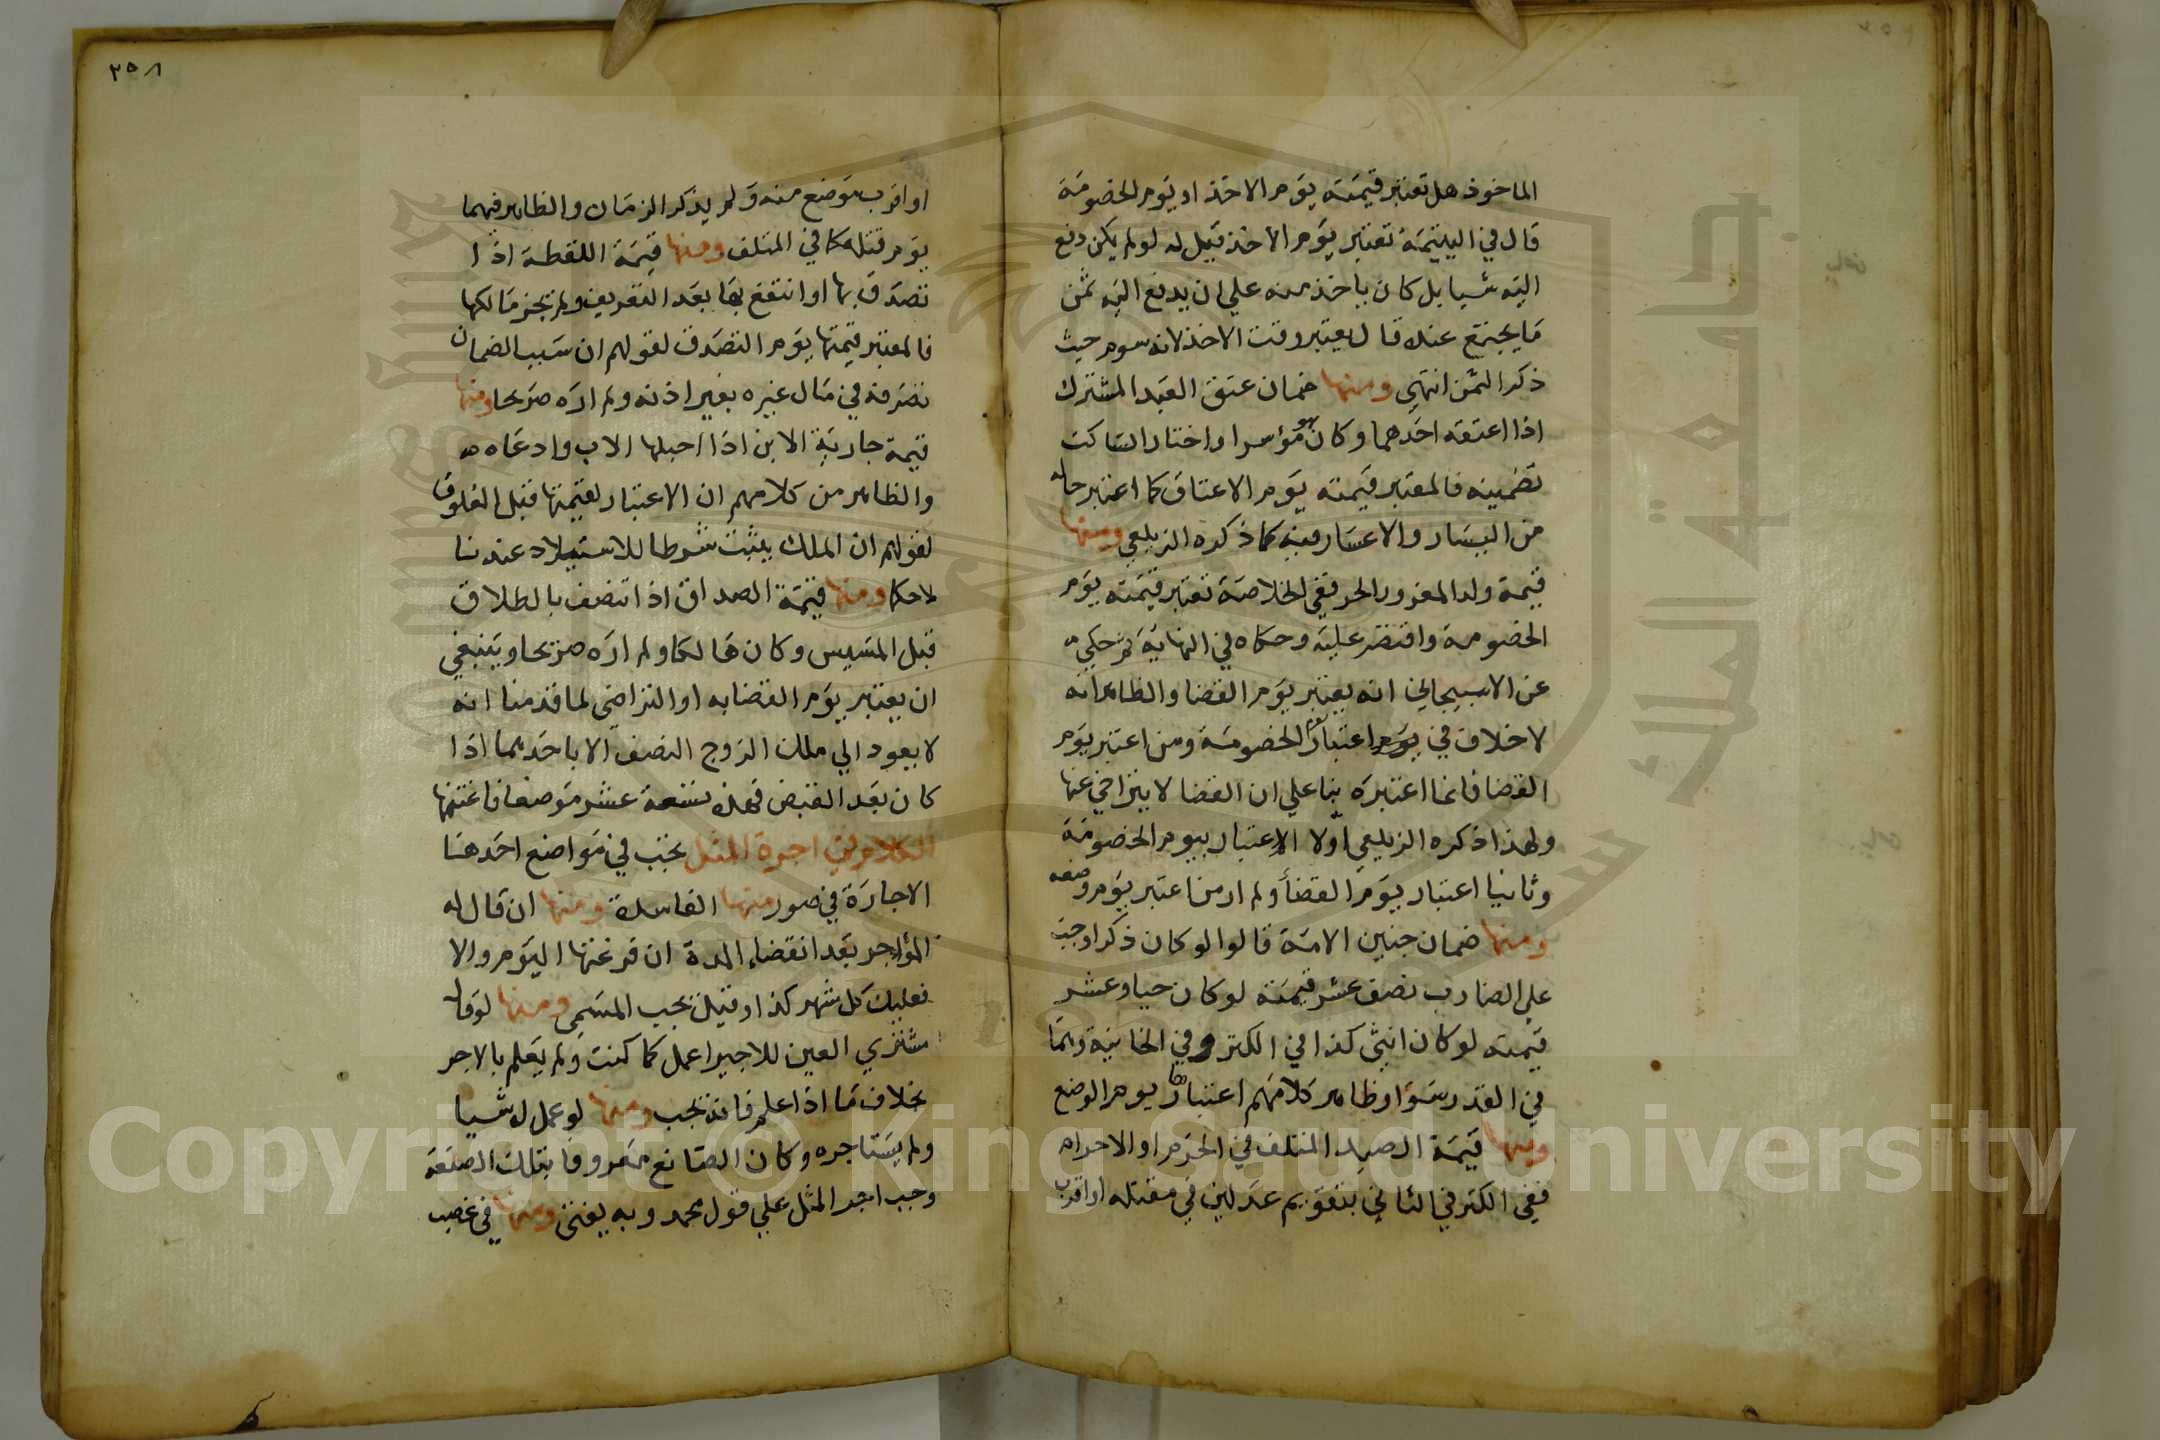 الماخوذ هل تعتبر قيمته يوم الاخذ او يوم الخصومة
قال في اليتيمة تعتبر يوم الاخذ قيل له لو لم يكن دفع
اليه شيا بل كان ياخذ منه علي ان يدفع اليه ثمن
ما يجتمع عنده قال يعتبر وقت الاخذ لانه سوم حيث
ذكر الثمن انتهي ومنها ضمان عتق العبد المشترك
اذا اعتقه احدهما وكان موسرا واختار الساكت
تضمينه فالمعتبر قيمته يوم الاعتاق كما اعتبر حاله
من اليسار والاعسار فيه كما ذكره الزيلعي ومنها
قيمة ولد المغرور الحر ففي الخلاصة تعتبر قيمته يوم
الخصومة واقتصر عليه وحكاه في النهاية ثم حكي
عن الاسبيجابي انه يعتبر يوم القضا والظاهر انه
لا خلاف في اعتبار يوم الخصومة ومن اعتبر يوم
القضا فانما اعتبره بنا علي ان القضا لا يتراخي عنها
ولهذا ذكره الزيلعي اولا الاعتبار بيوم الخصومة
وثانيا اعتبار يوم القضا ولم ار من اعتبر يوم وضعه
ومنها ضمان جنين الامة قالوا لو كان ذكرا وجب
علي الضارب نصف عشر قيمته لو كان حيا وعشر
قيمته لو كان انثي كذا في الكنز وفي الخانية وهما
في القدر سوا وظاهر كلامهم اعتبارها يوم الوضع
ومنها قيمة الصيد المتلف في الحرم او الاحرام
ففي الكنز في الثاني بتقويم عدلين في مقتله او اقرب
٣٥٨
او اقرب موضع منه ولم يذكر الزمان والظاهر فيهما
يوم قتله كما في المتلف ومنها قيمة اللقطة اذا
تصدق بها او انتفع بها بعد التعريف ولم يجز مالكها
فالمعتبر قيمتها يوم التصدق لقولهم ان سبب الضمان
تصرفه في مال غيره بغير اذنه ولم اره صريحا ومنها
قيمة جارية الابن اذا احبلها الاب وادعاه
والظاهر من كلامهم ان الاعتبار لقيمتها قبل العلوق
لقولهم ان الملك يثبت شرطا للاستيلاد عندنا
لا حكما ومنها قيمة الصداق اذا تنصف بالطلاق
قبل المسيس وكان هالكا ولم اره صريحا وينبغي
ان يعتبر يوم القضا به او التراضي لما قدمنا انه
لا يعود الي ملك الزوج النصف الا باحدهما اذا
كان بعد القبض فهذه تسعة عشر موضعا فاغتنمها
الكلام في اجرة المثل تجب في مواضع احدها
الاجارة في صور منها الفاسدة ومنها ان قال له
المؤاجر بعد انقضاء المدة ان فرغتها اليوم والا
فعليك كل شهر كذا وقيل يجب المسمي ومنها لو قال
مشتري العين للاجير اعمل كما كنت ولم يعلم بالاجر
بخلاف ما اذا علم فانه يجب ومنها لو عمل له شيا
ولم يستاجره وكان الصانع معروفا بتلك الصنعة
وجب اجر المثل علي قول محمد وبه يفتي ومنها في غصب
Copyright © King Saud University
جامعة الملك سعود